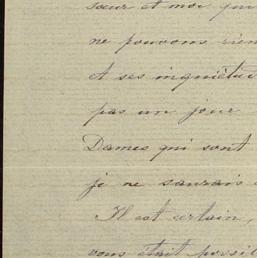 sœur et moi qui
ne pouvons rien
et ses inquiétu
pas un jour
Dames qui sont
je ne saurais
Il est certain,
vous était possib